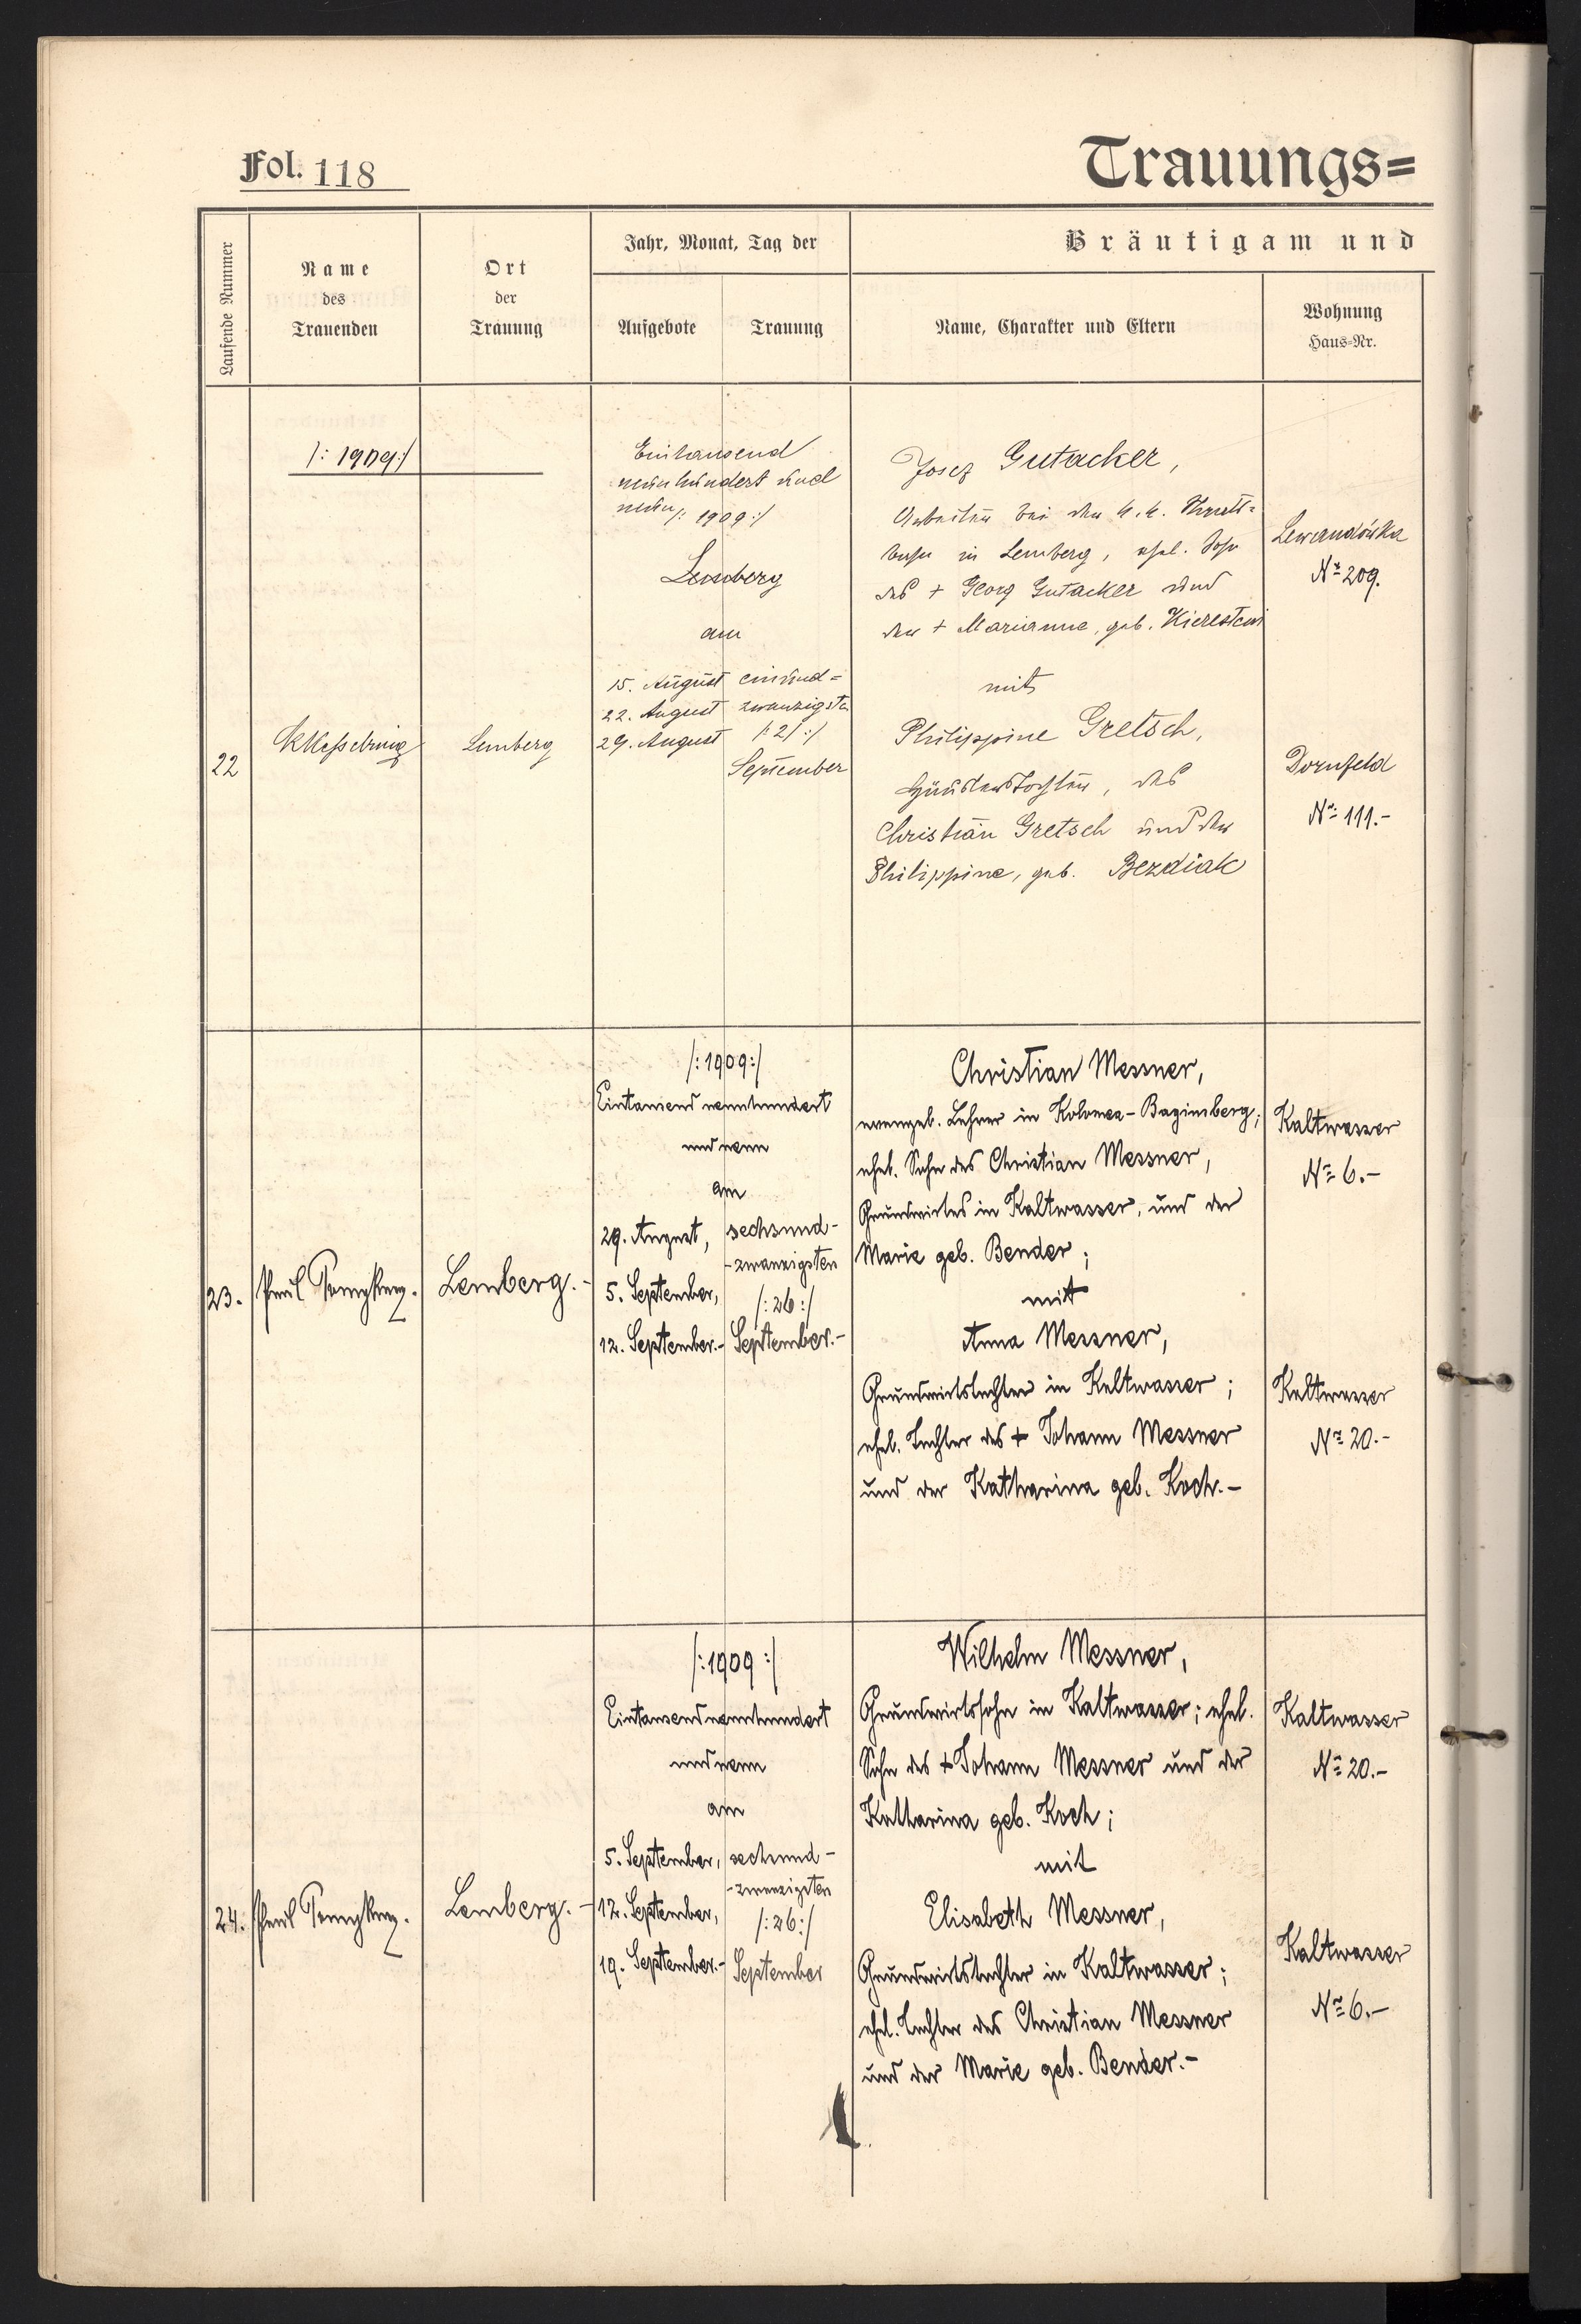 Fol. 118
Trauungs=
Laufende Nummer
Name
des
Trauenden
Ort
der
Trauung
Jahr, Monat, Tag der
Aufgebote
Trauung
Bräutigam und
Name, Charakter und Eltern
Wohnung
Haus=Nr.
/: 1909 :/
22
Lemberg
Eintausend
neunhundert und
neun /: 1909 :/
Lemberg
am
15. August
22. August
29. August
einund=
zwanzigsten
/: 21 :/
September
Josef Gutacker,
Arbeiter bei der k. k. Staats=
bahn in Lemberg, ehel. Sohn
des + Georg Gutacker und
der + Marianne, geb.
mit
Philippine Gretsch,
des
Christian Gretsch und der
Philippine, geb. Bezdiak
Lewandówka
No 209.
Dornfeld
No 111.-
23.
Paul
Lemberg.-
/: 1909 :/
Eintausend neunhundert
und neun
am
29. August,
5. September,
12. September.-
sechsund-
-zwanzigsten
/: 26 :/
September.-
Christian Messner,
evang. Lehrer in Kolomea-Baginsberg;
ehel. Sohn des Christian Messner,
Grundwirtes in Kaltwasser, und der
Marie geb. Bender;
mit
Anna Messner,
Grundwirtstochter in Kaltwasser;
ehel. Tochter des + Johann Messner
und der Katharina geb. Koch.-
Kaltwasser
No 6.-
Kaltwasser
No 20.-
24.
Paul
Lemberg.-
/: 1909 :/
Eintausend neunhundert
und neun
am
5. September,
12. September,
19. September.-
sechsund-
-zwanzigsten
/: 26 :/
September
Wilhelm Messner,
Grundwirtssohn in Kaltwasser; ehel.
Sohn des + Johann Messner und der
Katharina geb. Koch;
mit
Elisabeth Messner,
Grundwirtstochter in Kaltwasser;
ehel. Tochter des Christian Messner
und der Marie geb. Bender.-
Kaltwasser
No 20.-
Kaltwasser
No 6.-